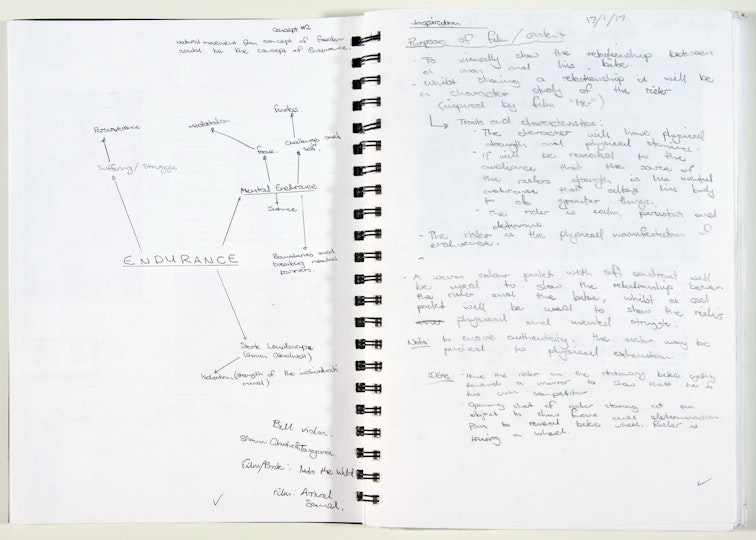 Concept #2
natural movement from concept of freedom
could be the concept of Endurance.
Perserverance
Suffering / Struggle
meditation
focus
challenge one's
self.
Mental Endurance
Silence
Boundaries and
breaking mental
barriers.
ENDURANCE
Stark Landscape
Isolation (strength of the individual's
mind)
Bill viola.
Shaun
Film/Book: Into the Wild
Film: Arrival
Inspiration:
17/1/17
Purpose of film / content
- To visually show the relationship between
a man and his bike.
- Whilst showing a relationship it will be
a character study of the rider
(inspired by film "Her")
Traits and characteristics:
- The character will have physical
strength and physical stamina.
- It will be revealed to the
audience that the source of
the riders strength is his mental
endurance that allows his body
to do greater things.
- The rider is calm, persistent and
determine.
- The rider is the physical manifestation of
endurance.
- A warm colour palet with soft contrast will
be used to show the relationship between
the rider and the bike, whilst a cool
palet will be used to show the rider's
physical and mental struggle.
Note: to ensure authenticity, the actor may be
pushed to physical exhaustion.
IDEAS: - Have the rider on the stationary bike cycling
towards a mirror to show that he is
his own competitor
- Opening shot of rider staring at an
object to show focus and determination
Pan to reveal bike wheel. Rider is
truing a wheel.